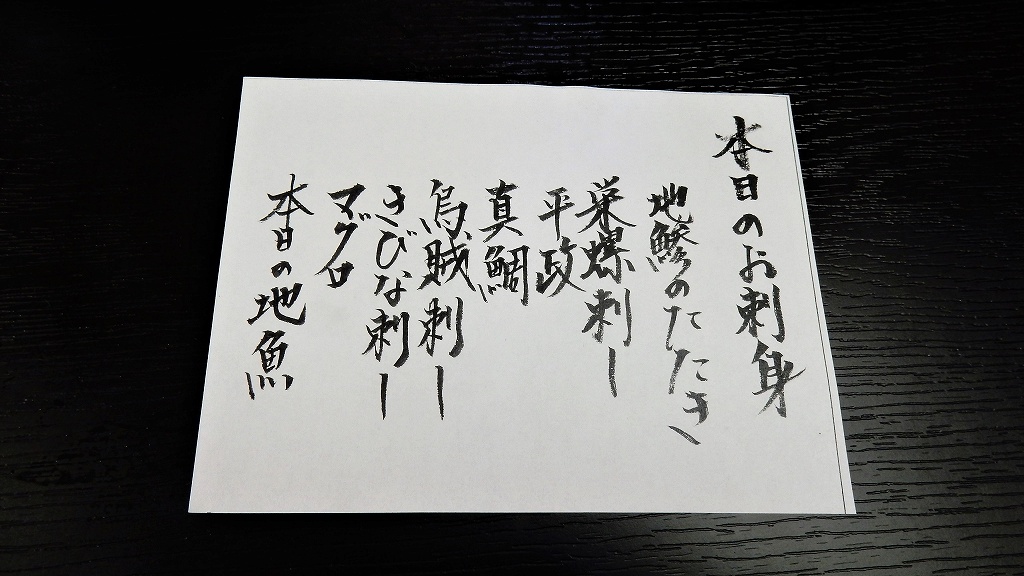 本日のお刺身
地鯵のたたき
栄螺刺し
平政
真鯛
烏賊刺し
きびな刺し
マグロ
本日の地魚